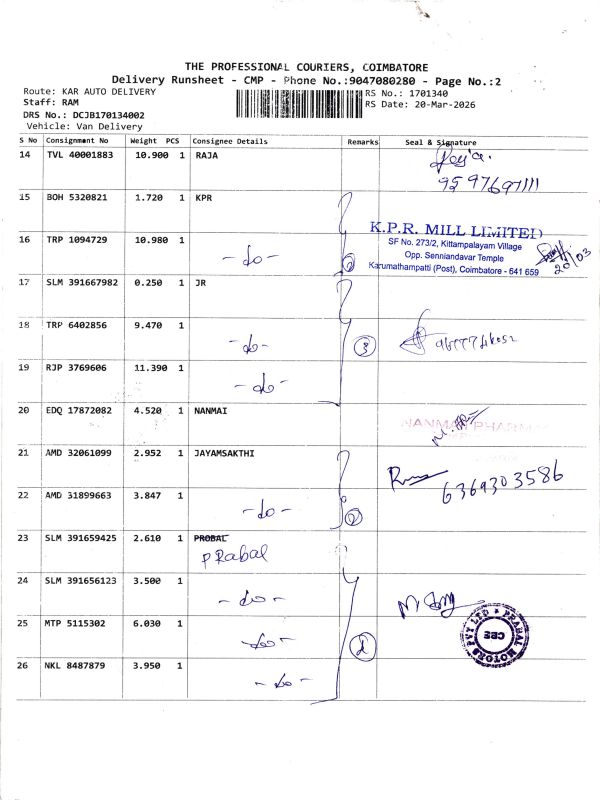 THE PROFESSIONAL COURIERS, COIMBATORE
Delivery Runsheet - CMP - Phone No.:9047080280 - Page No.:2
Route: KAR AUTO DELIVERY
RS No.: 1701340
Staff: RAM
RS Date: 20-Mar-2026
DRS No.: DCJB170134002
Vehicle: Van Delivery
S No Consignment No Weight PCS Consignee Details Remarks Seal & Signature
14 TVL 40001883 10.900 1 RAJA
9597697111
15 BOH 5320821 1.720 1 KPR
K.P.R. MILL LIMITED
SF No. 273/2, Kittampalayam Village
Opp. Senniandavar Temple
Karumathampatti (Post), Coimbatore - 641 659
20/03
16 TRP 1094729 10.980 1 -do-
17 SLM 391667982 0.250 1 JR
18 TRP 6402856 9.470 1 -do- 3
19 RJP 3769606 11.390 1 -do-
20 EDQ 17872082 4.520 1 NANMAI
NANMAI PHARMA
21 AMD 32061099 2.952 1 JAYAMSAKTHI
6369303586
22 AMD 31899663 3.847 1 -do- 2
23 SLM 391659425 2.610 1 PROBAL
PRabal
24 SLM 391656123 3.500 1 -do-
25 MTP 5115302 6.030 1 -do-
PRABAL MOTORS PVT LTD
CBE
26 NKL 8487879 3.950 1 -do-